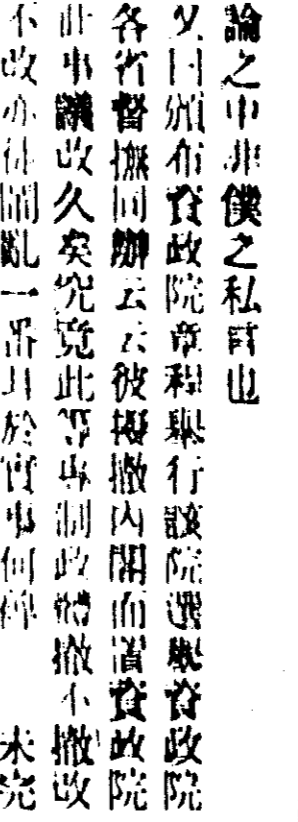 論之中非僕之私言也
又曰頒布資政院章程舉行該院選舉資政院
各省督撫同辦云云彼擬撤內閣而置資政院
此事議改久矣究竟此等專制政體撤不撤改
不改亦徒鬧亂一番耳於實事何裨 未完